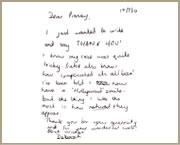 Dear
I just wanted to write
and say THANK YOU!
I know my case was quite
tricky
how complicated it's all been!
I've been told I now
have a 'Hollywood Smile'
but the thing I like the
most is how natural they
appear.
Thank you for your generosity
and for your wonderful work!
Deborah